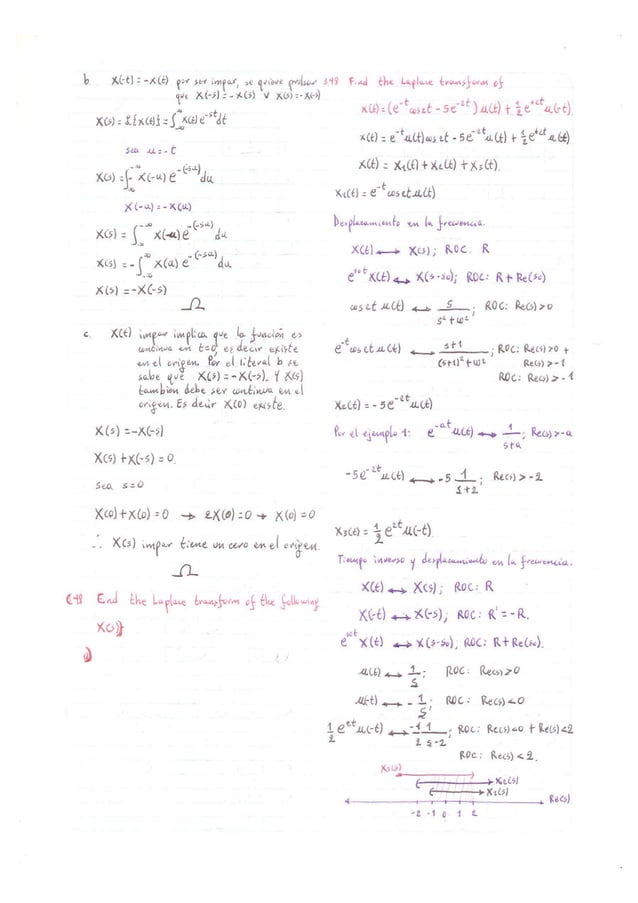 b. X(-t) = -X(t) por ser impar, se quiere probar
que X(-s) = -X(s) v X(s) = -X(-s)
X(s) = L{x(t)} = ∫_{-∞}^{∞} x(t) e^{-st} dt
sea u = -t
X(s) = ∫_{∞}^{-∞} X(-u) e^{-(-su)} du
X(-u) = -X(u)
X(s) = ∫_{-∞}^{-∞} X(-u) e^{-(-su)} du
X(s) = -∫_{-∞}^{∞} X(u) e^{-(-su)} du
X(s) = -X(-s)
Ω
c. X(t) impar implica que la función es
continua en t=0, es decir existe
en el origen. Por el literal b se
sabe que X(s) = -X(-s). Y X(s)
también debe ser continua en el
origen. Es decir X(0) existe.
X(s) = -X(-s)
X(s) + X(-s) = 0.
sea s=0
X(0) + X(0) = 0 → 2X(0) = 0 → X(0) = 0
∴ X(s) impar tiene un cero en el origen.
Ω
End the Laplace transform of the following
X(s)}
a)
3.48 Find the Laplace transform of
x(t) = (e^{-t} cos 2t - 5e^{-2t}) u(t) + 1/2 e^{2t} u(-t).
x(t) = e^{-t} u(t) cos 2t - 5e^{-2t} u(t) + 1/2 e^{2t} u(-t)
x(t) = X1(t) + X2(t) + X3(t).
X1(t) = e^{-t} cos 2t u(t)
Desplazamiento en la frecuencia.
X(t) ↔ X(s); ROC: R
e^{s0t} X(t) ↔ X(s-s0); ROC: R + Re(s0)
cos 2t u(t) ↔ s/(s²+ω²); ROC: Re(s)>0
e^{-t} cos 2t u(t) ↔ (s+1)/((s+1)²+ω²); ROC: Re(s)>0 +
Re(s)>-1
ROC: Re(s)>-1
X2(t) = -5e^{-2t} u(t)
Por el ejemplo 1: e^{-at} u(t) ↔ 1/(s+a); Re(s)>-a
-5e^{-2t} u(t) ↔ -5 1/(s+2); Re(s)>-2
X3(t) = 1/2 e^{2t} u(-t)
Tiempo inverso y desplazamiento en la frecuencia.
X(t) ↔ X(s); ROC: R
X(-t) ↔ X(-s); ROC: R' = -R.
e^{s0t} X(t) ↔ X(s-s0); ROC: R + Re(s0).
u(t) ↔ 1/s; ROC: Re(s)>0
u(-t) ↔ -1/s; ROC: Re(s)<0
1/2 e^{2t} u(-t) ↔ -1/2 1/(s-2); ROC: Re(s)<0 + Re(s)<2
ROC: Re(s)<2.
X3(s)
X2(s)
X1(s)
Re(s)
-2 -1 0 1 2